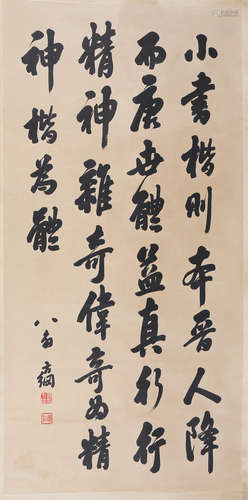 小書楷則本晉人降
而唐世體益真行行
精神雖奇偉奇如精
神楷為體
方綱